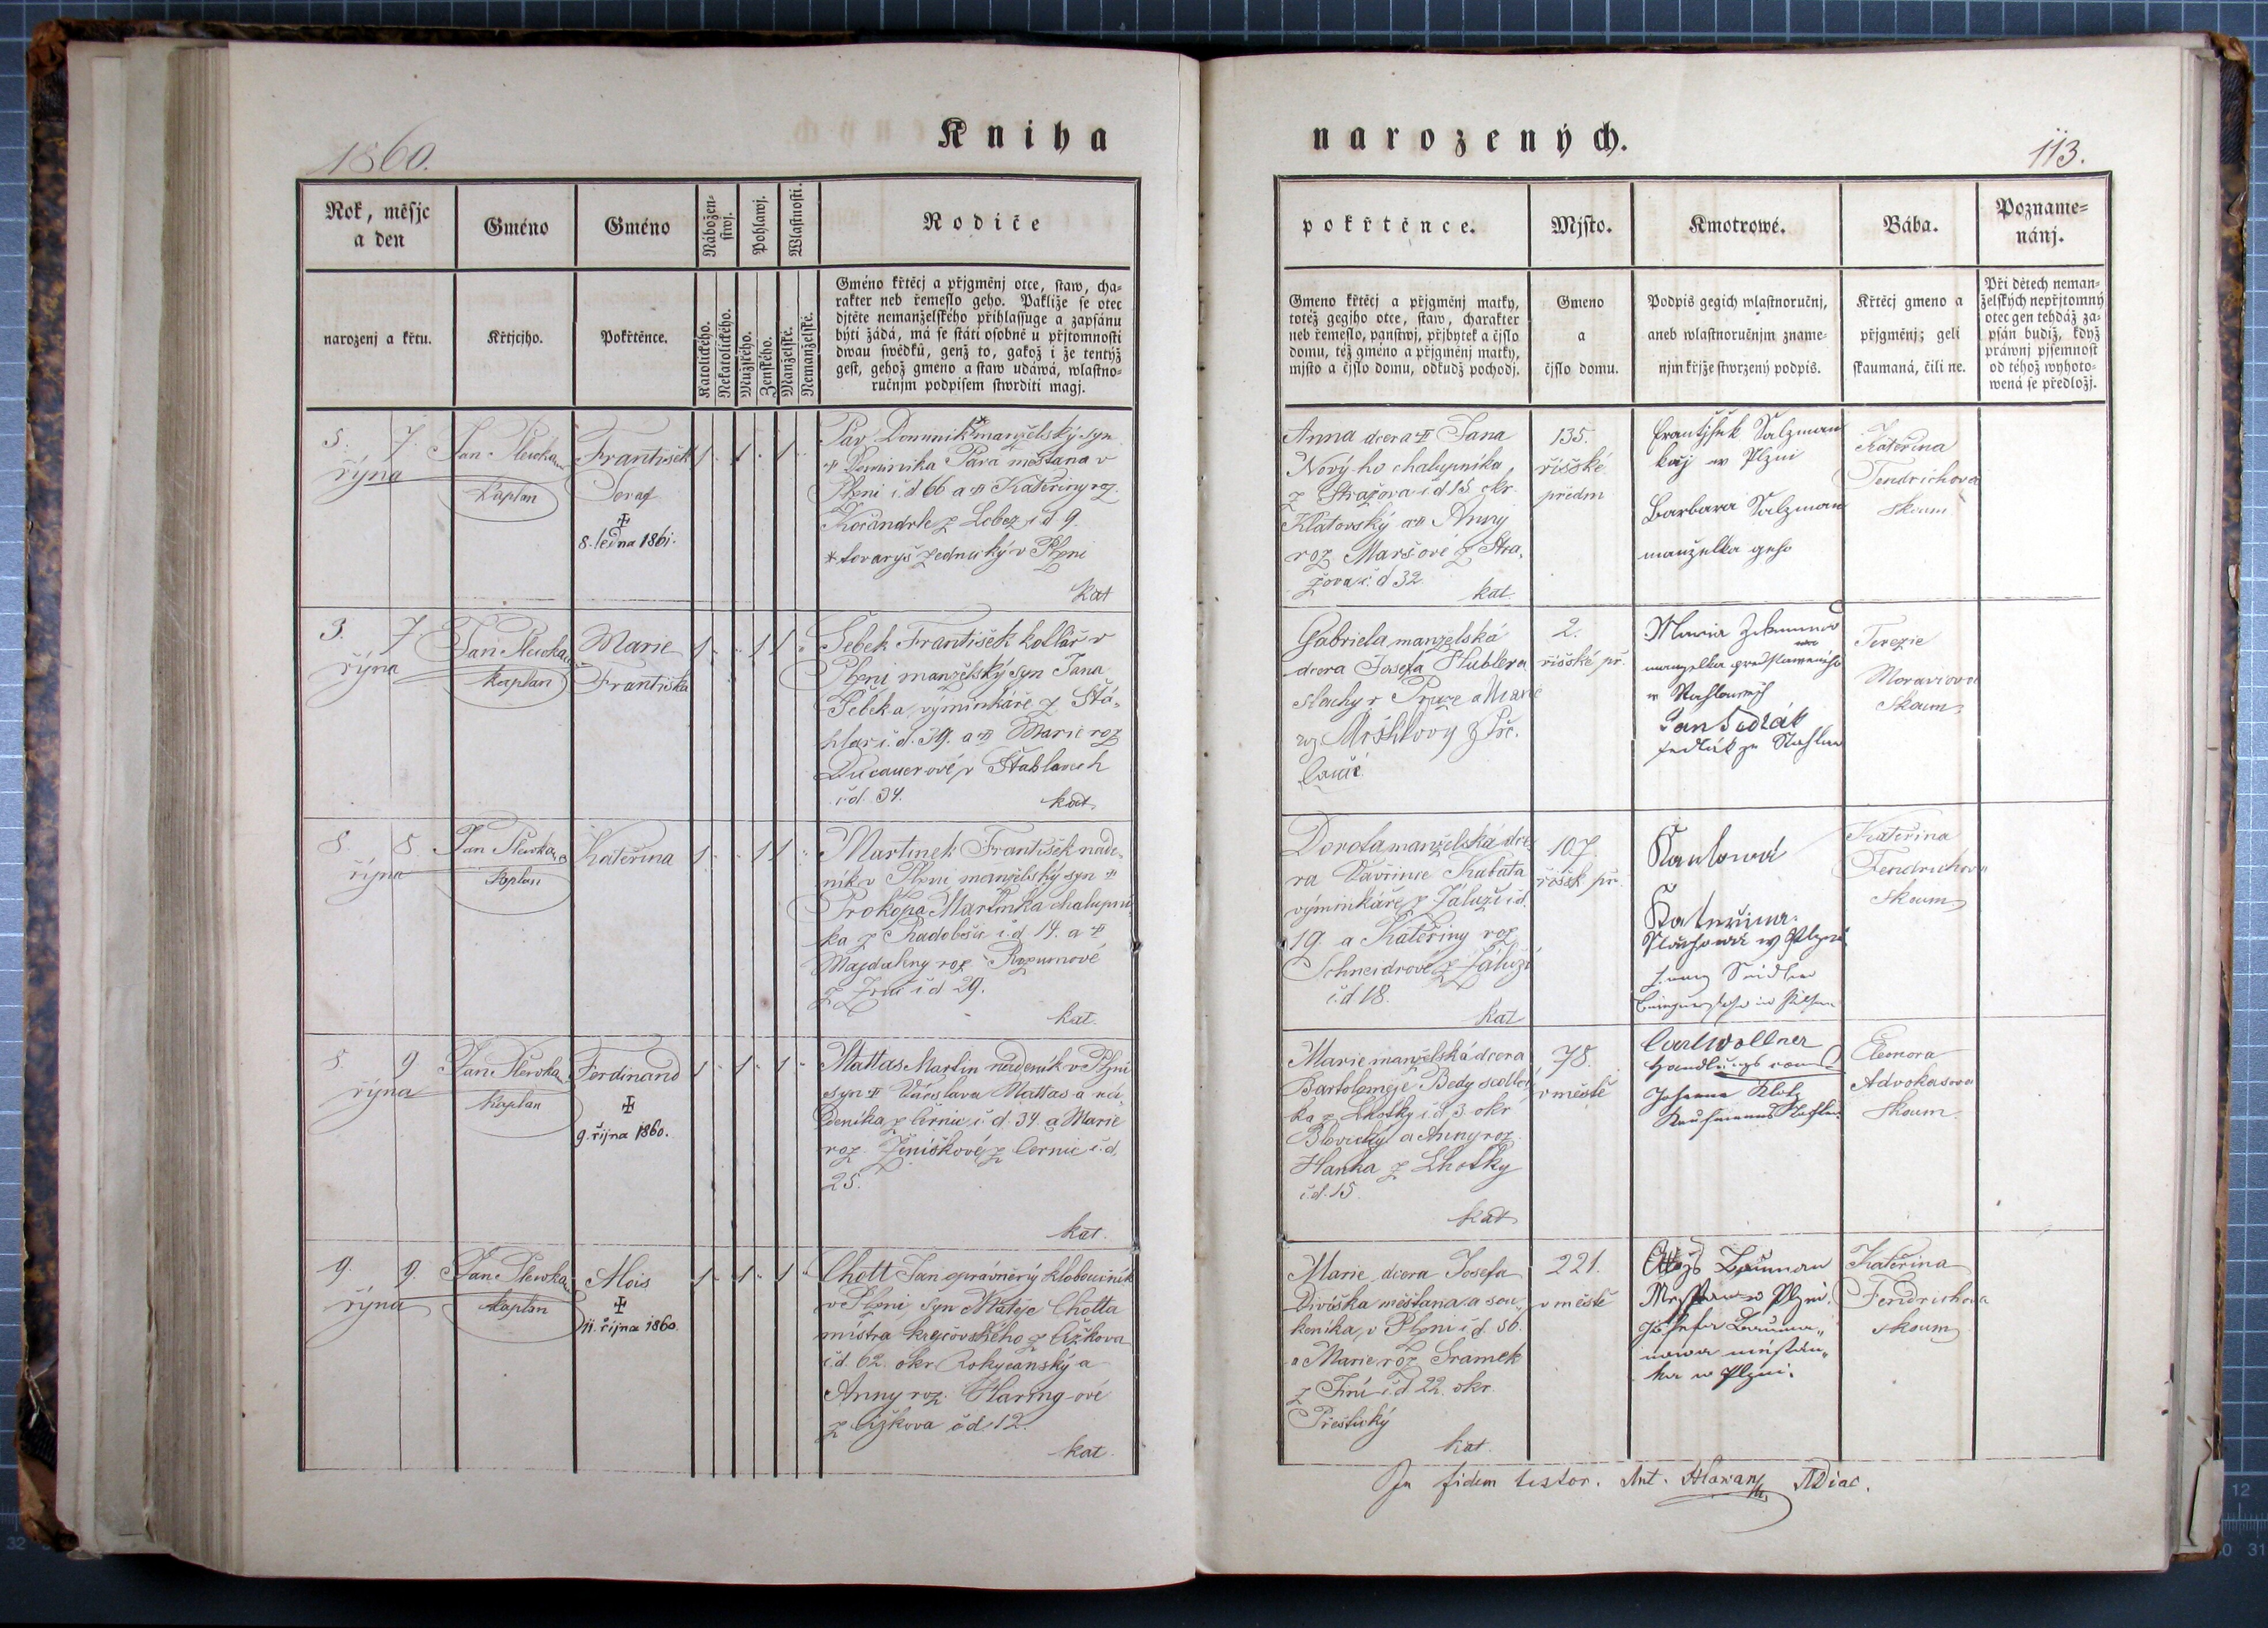 1860.
Kniha
Rok, měsjc
a den
Gméno
Gméno
Nábožen-
stwj.
Pohlawj.
Wlastnosti.
Rodiče
narozenj a křtu.
Křtjcjho.
Pokřtěnce.
Katolického.
Nekatolického.
Mužského.
Ženského.
Manželské.
Nemanželské.
Gméno křtěcj a přjgměnj otce, staw, cha-
rakter neb řemeslo geho. Pakliže se otec
djtěte nemanželského přihlassuge a zapsánu
býti žádá, má se státi osobně u přjtomnosti
dwau swědků, genž to, gakož i že tentýž
gest, gehož gmeno a staw udáwá, wlastno-
ručnjm podpisem stwrditi magj.
5. 7.
řýna
Jan
Kaplan
František
Seraf
✠
8. ledna 1861.
1 1 1
Páv Dominik* manželský syn
✠ Dominika Páva měštana v
Plzni č. d 66 a ✠ Kateřiny roz.
Korandrle z Lobez č d 9.
* tovaryš zednický v Plzni
kat
3. 7
řýna
Jan
Kaplan
Marie
Františka
1 1 1
Šebek František kotlář v
Plzni manželský syn Jana
Šebeka, výminkáře z Šťá-
hlav č. d. 39. a ✠ Marie roz
v Štahlavech
č d. 34.
kat
8. 8.
řýna
Jan
Kaplan
Kateřina
1 1 1
Martinek František náde-
ník v Plzni manželský syn ✠
Prokopa Martinka chalupní
ka z Radobšic č. d 14. a ✠
Majdaleny roz Rozumové
z č d 29.
kat.
5. 9
řýna
Jan
Kaplan
Ferdinand
✠
9. října 1860.
1 1 1
Mattas Martin nádeník v Plzni
syn ✠ Václava Mattas a ná-
deníka z Černic č. d. 34. a Marie
roz. Ženíškové z Černic č. d.
25.
kat.
9. 9.
řýna
Jan
Kaplan
Alois
✠
11. října 1860.
1 1 1
Chott Jan oprávněný kloboučník
v Plzni, syn Matěje Chotta
mistra krejčovského z Cížkova
č. d. 62. okr Rokycanský a
Anny roz. Haring-ové
z Cížkova č d. 12.
kat
narozených.
113.
pokřtěnce.
Mjsto.
Kmotrowé.
Bába.
Pozname-
nánj.
Gmeno křtěcj a přjgměnj matky,
totéž gegjho otce, staw, charakter
neb řemeslo, panstwj, přjbytek a čjslo
domu, též gméno a přjgměnj matky,
mjsto a čjslo domu, odkudž pochodj.
Gmeno
a
čjslo domu.
Podpis gegich wlastnoručnj,
aneb wlastnoručnjm zname-
njm křjže stwrzený podpis.
Křtěcj gmeno a
přjgměnj; geli
skaumaná, čili ne.
Při dětech neman-
želských nepřjtomný
otec gen tehdáž za-
psán budiž, když
práwnj pjsemnost
od téhož wyhoto-
wená se předložj.
Anna dcera ✠ Jana
Nový-ho chalupníka
z Stražova č d 15 okr.
Klatovský a ✠ Anny
roz Maršové z Stra-
žova č. d 32.
kat.
135.
říšské
předm
Frantjšek Salzman
w Plzni
Barbara Salzman
manželka geho
Kateřina
Fendrichova
skoum
Gabriela manželská
dcera Josefa Hublera
v Praze a Marie
roz
2.
říšské př.
Maria
manželka
Jan Sedlák
sedlák ze Stahlau
Terezie
Moraviova
skoum
Dorota manželská dce-
ra Vavřince Kabáta
výminkáře z Záluží č d.
19. a Kateřiny roz
Schneidrové z Záluží
č. d 18.
kat
107.
říšsk př.
Katerina
w Plzni
Kateřina
Fendrichova
skoum
Marie manželská dcera
Bartoloměje Bedy
ka z Lhotky č. d 3. okr
Blovický a Anny roz.
Hanka z Lhotky
č. d. 15.
kat
78.
v městě
Carl Wollner
Johanna Klotz
Eleonora
Advokasova
skoum.
Marie, dcera Josefa
Diviška měštana a sou-
keníka, v Plzni č d. 56.
a Marie roz Sramek
z č. d 22. okr.
Přeštický
kat.
221.
v městě
Bauman
w Plzni.
Josefa Bauma-
nowa mněštan-
ka w Plzni.
Kateřina
Fendrichova
skoum
In fidem testor. Ant. Hlawan ADiac.